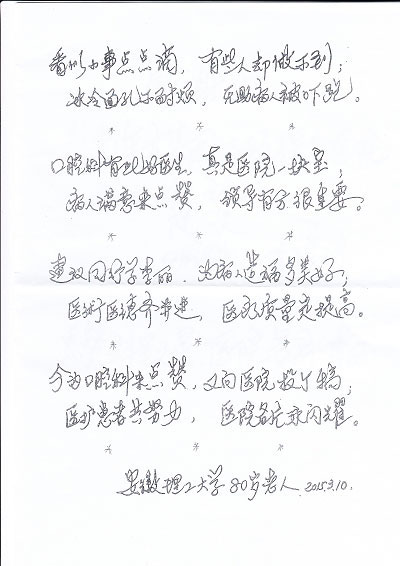 看似小事点点滴，有些人却做不到；
冰冷面孔不耐烦，无助病人被吓跑。
* * *
口腔科有此好医生，真是医院一块宝；
病人满意来点赞，领导有方很重要。
* * *
建议同行学李丽，为病人造福多美好；
医术医德齐并进，医疗质量定提高。
* * *
今为口腔科来点赞，又向医院投个稿；
医护患者共努力，医院名声永闪耀。
* * *
安徽理工大学80岁老人 2015.3.10.